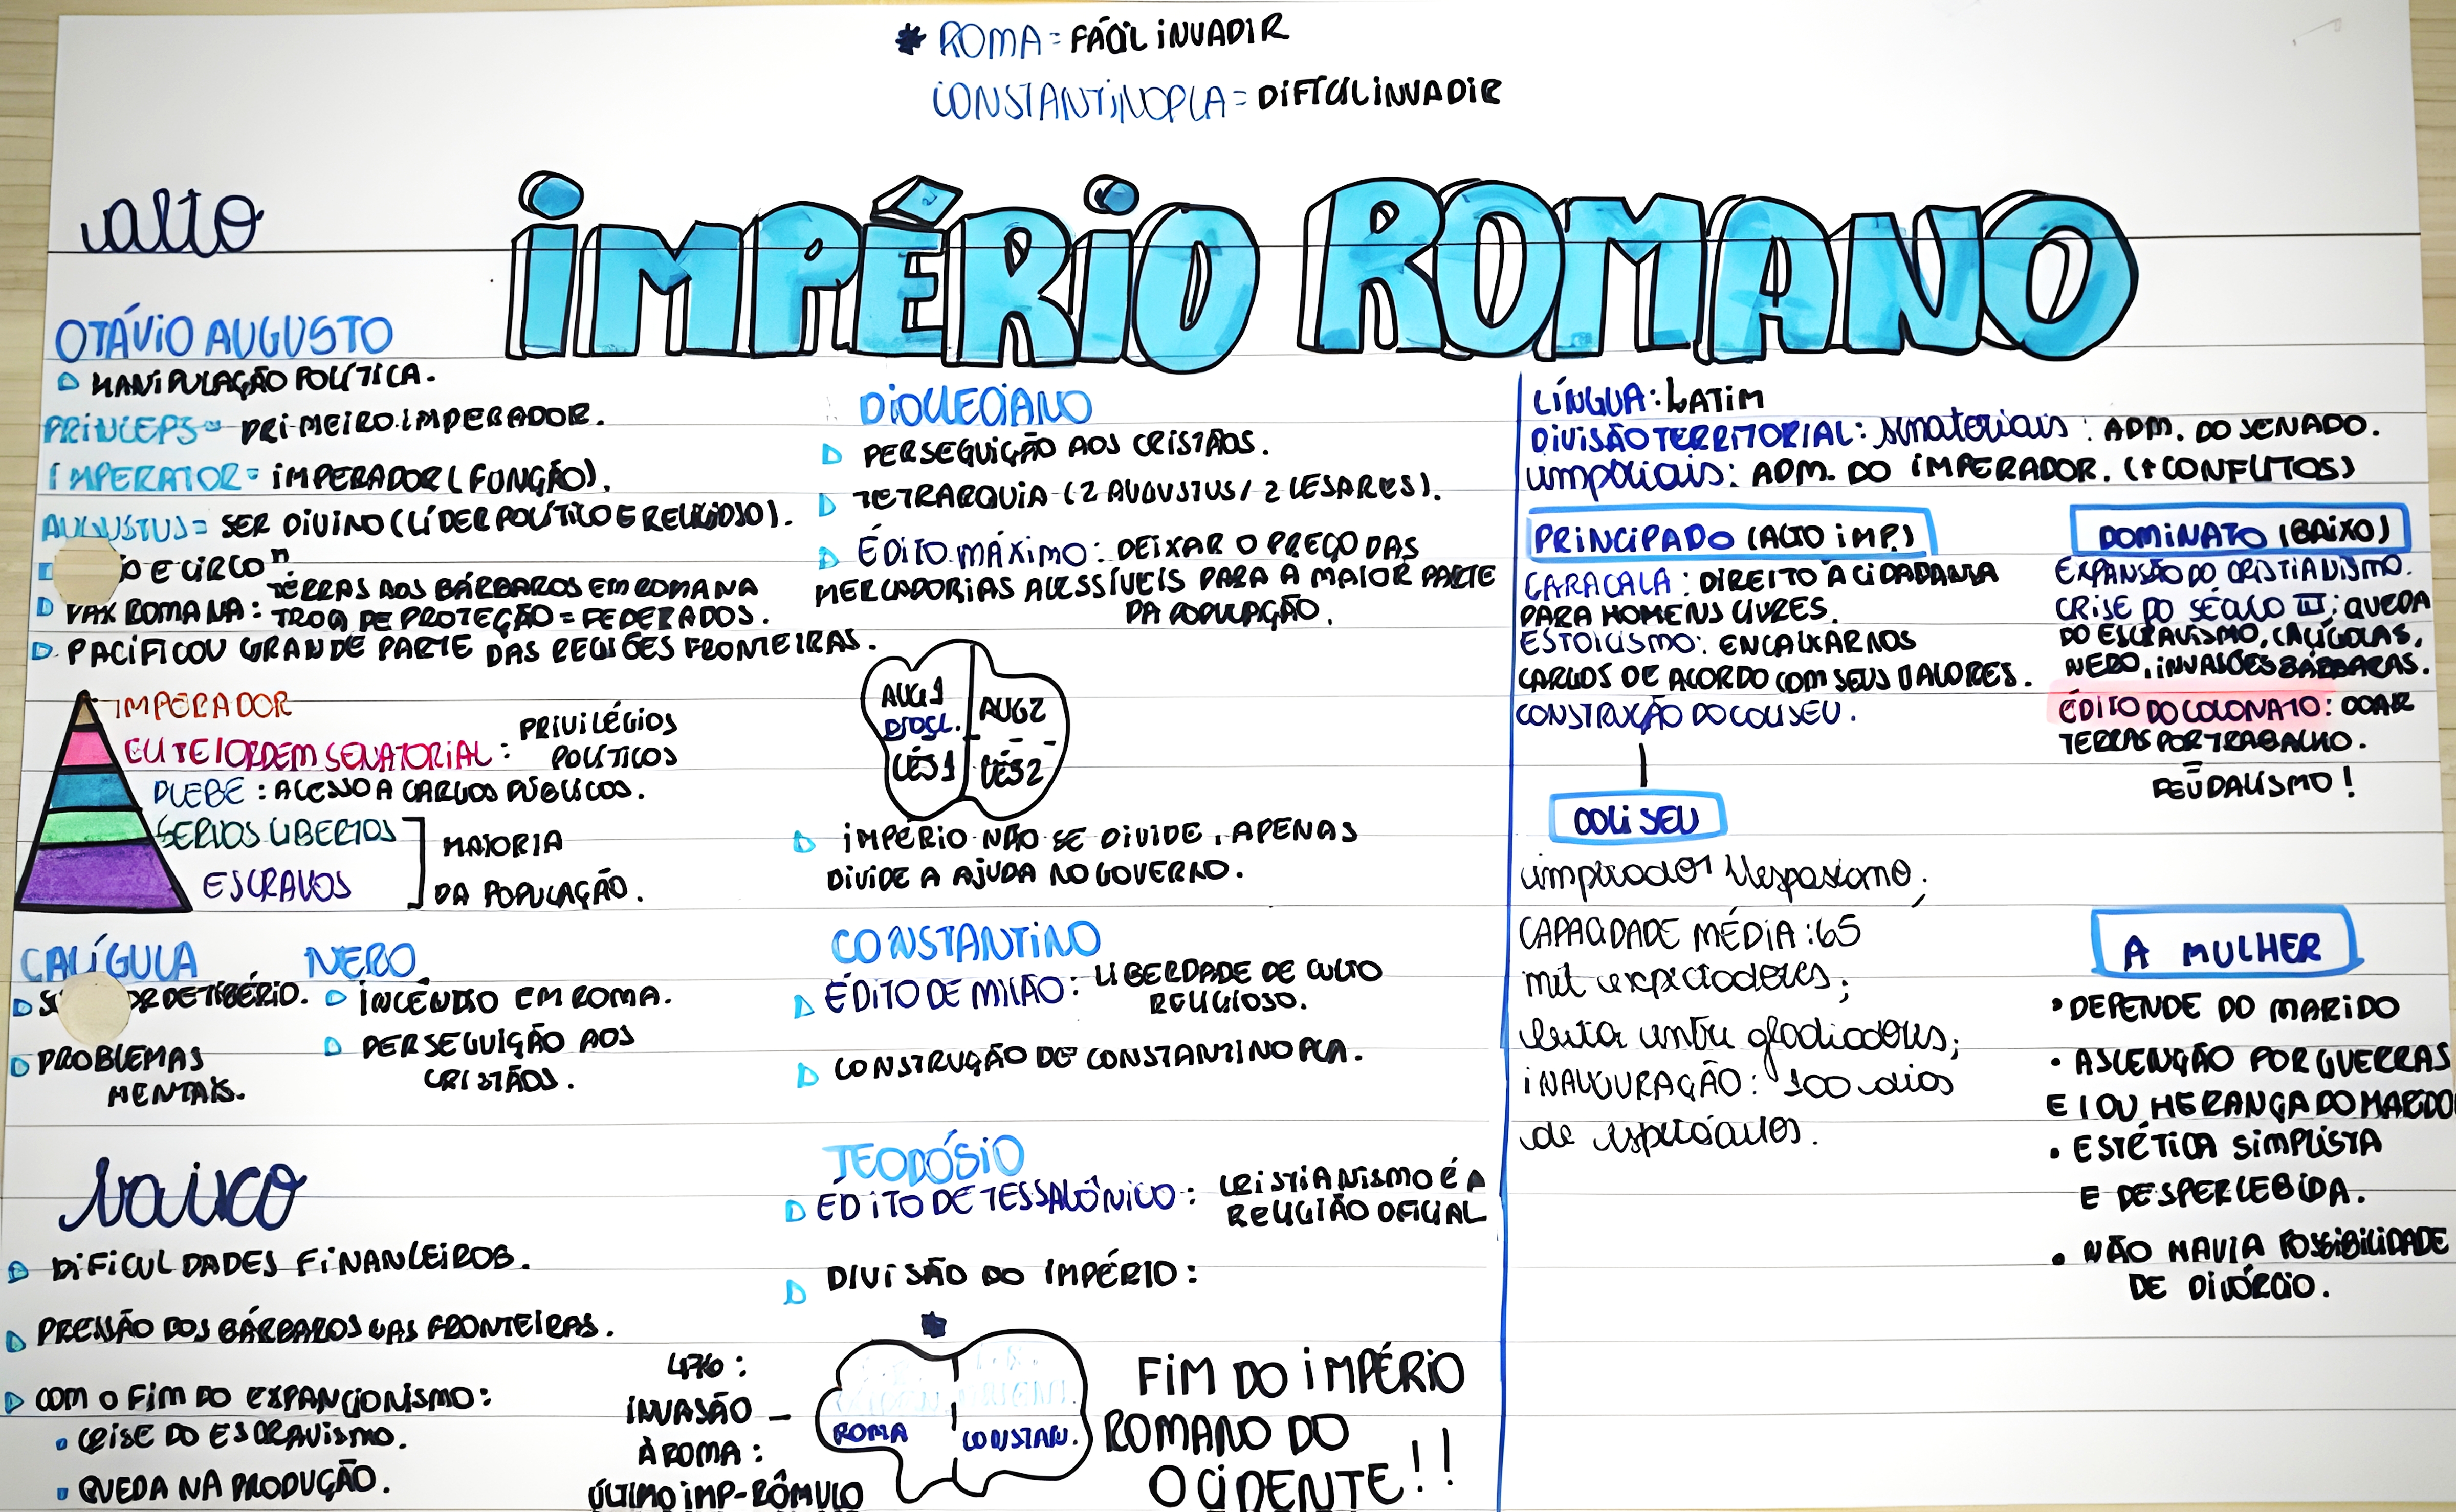 * ROMA = FÁCIL INVADIR
CONSTANTINOPLA = DIFÍCIL INVADIR
IMPÉRIO ROMANO
alto
OTÁVIO AUGUSTO
MANIPULAÇÃO POLÍTICA.
PRINCEPS = PRIMEIRO IMPERADOR.
IMPERATOR = IMPERADOR (FUNÇÃO).
AUGUSTUS = SER DIVINO (LÍDER POLÍTICO E RELIGIOSO).
O E CIRCO"
PAX ROMANA: TERRAS AOS BÁRBAROS EM ROMANA
TROCA DE PROTEÇÃO = FEDERADOS.
PACIFICOU GRANDE PARTE DAS REGIÕES FRONTEIRAS.
IMPERADOR
ELITE/ORDEM SENATORIAL: PRIVILÉGIOS
POLÍTICOS
PLEBE: ACESSO A CARGOS PÚBLICOS.
SERVOS LIBERTOS
ESCRAVOS
MAIORIA
DA POPULAÇÃO.
CALÍGULA
DE TIBÉRIO.
PROBLEMAS
MENTAIS.
NERO
INCÊNDIO EM ROMA.
PERSEGUIÇÃO AOS
CRISTÃOS.
baixo
DIFICULDADES FINANCEIROS.
PRESSÃO DOS BÁRBAROS NAS FRONTEIRAS.
COM O FIM DO EXPANCIONISMO:
CRISE DO ESCRAVISMO.
QUEDA NA PRODUÇÃO.
DIOCLECIANO
PERSEGUIÇÃO AOS CRISTÃOS.
TETRARQUIA (2 AUGUSTUS/ 2 CESARES).
ÉDITO MÁXIMO: DEIXAR O PREÇO DAS
MERCADORIAS ACESSÍVEIS PARA A MAIOR PARTE
DA POPULAÇÃO.
AUG1
DIOCL.
AUG2
CÉS1
CÉS2
IMPÉRIO NÃO SE DIVIDE, APENAS
DIVIDE A AJUDA NO GOVERNO.
CONSTANTINO
ÉDITO DE MILÃO: LIBERDADE DE CULTO
RELIGIOSO.
CONSTRUÇÃO DE CONSTANTINOPLA.
TEODÓSIO
EDITO DE TESSALÔNICO: CRISTIANISMO É A
RELIGIÃO OFICIAL
DIVISÃO DO IMPÉRIO:
*
476:
INVASÃO –
À ROMA:
ÚLTIMO IMP-RÔMULO
ROMA
CONSTAN.
FIM DO IMPÉRIO
ROMANO DO
OCIDENTE!!
LÍNGUA: LATIM
DIVISÃO TERRITORIAL: senatoriais: ADM. DO SENADO.
imperiais: ADM. DO IMPERADOR. (+CONFLITOS)
PRINCIPADO (ALTO IMP.)
CARACALA: DIREITO À CIDADANIA
PARA HOMENS LIVRES.
ESTOICISMO: ENCAIXAR NOS
CARGOS DE ACORDO COM SEUS VALORES.
CONSTRUÇÃO DO COLISEU.
COLISEU
imperador Vespasiano;
CAPACIDADE MÉDIA: 65
mil expectadores;
luta entre gladiadores;
INAUGURAÇÃO: 100 dias
de espetáculos.
DOMINATO (BAIXO)
EXPANSÃO DO CRISTIANISMO.
CRISE DO SÉCULO III: QUEDA
DO ESCRAVISMO, CALÍGOLAS,
NERO, INVASÕES BÁRBARAS.
ÉDITO DO COLONATO: DOAR
TERRAS POR TRABALHO.
FEUDALISMO!
A MULHER
• DEPENDE DO MARIDO
• ASCENÇÃO POR GUERRAS
E/OU HERANÇA DO MARIDO
• ESTÉTICA SIMPLISTA
E DESPERCEBIDA.
• NÃO HAVIA POSSIBILIDADE
DE DIVÓRCIO.